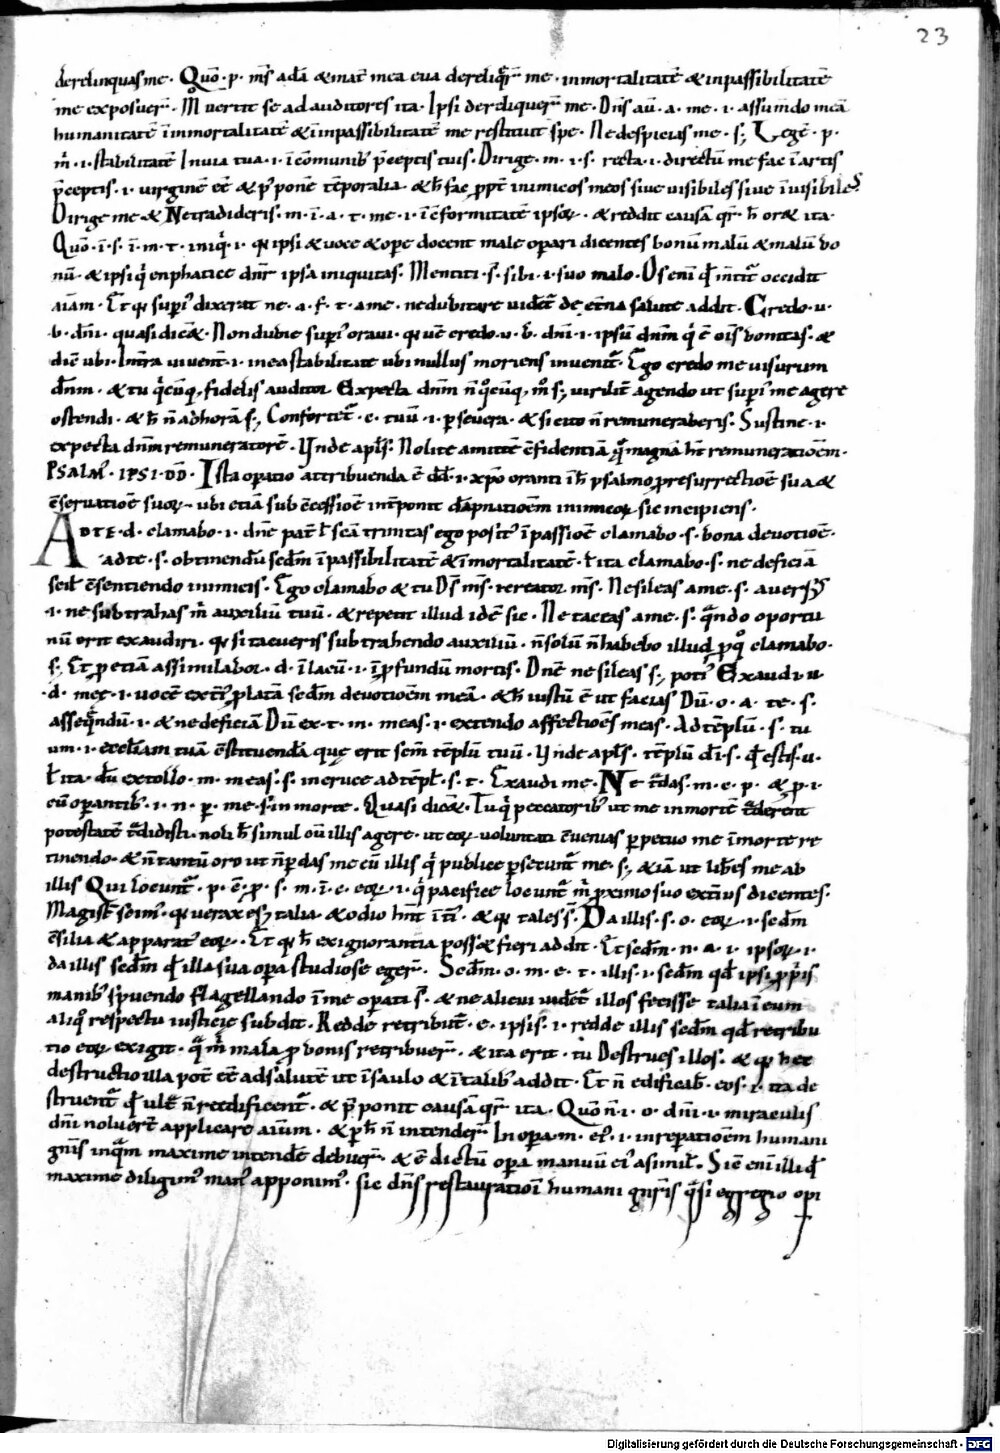 23
derelinquas me. Quō. p. mṡ adā & mat̄ mea eua dereliq̄r̄ me. inmortalitatē & inpassibilitatē
me exposuer̄. Vertit se ad auditores ita. Ipsi dereliquer̄ me. Dn̄s aū. a. me. i. assumēdo meā
humanitatē īmmortalitatē & īnpassibilitatē me restituit spe. Ne despicias me. s; Legē. p.
m̄. i. stabilitatē In uia tua. i. ī cōmunib; p̄ceptis tuis. Dirige. m. i. s. recta. i. directū me fac ī artis
p̄ceptis. i. uirginē eē & p̄ponē tēporalia. & h̄ fac p̄pt̄ inimicos meos siue uisibiles siue īuisibiles
Dirige me & Ne tradideris. m. ī. a. t. me. i. ī c̄formitatē ipsoꝝ. & reddit causā qr̄ h̄ orat ita.
Quō. ī. s. ī. m. t. iniq̄. i. qꝫ ipsi & uoce & ope docent male opari dicentes bonū malū & malū bo
nū. & ipsi q̄ enphatice dn̄r ipsa iniquitas. Mentita. s̄. sibi. i. suo malo. Os enī qd̄ mētit̄ occidit
aīam. Et qꝫ suꝑ dixerat ne. a. f. t. a me. ne dubitare uideret̄ de et̄na salute addit. Credo. u.
b. dn̄i. quasi dic̄&. Non dubie suꝑ oraui. qꝫ uē credo. u. b. dn̄i. i. ipsū dn̄m q̄ ē oīs bonitas. &
diē ubi. In t̄ra uiuent̄. i. in ea stabilitate ubi nullus moriens inuenit̄. Ego credo me uisurum
dn̄m. & tu q̄cūq; fidelis auditor Expecta dn̄m n̄ q°cūq; m° s; uirilit̄ agendo ut suꝑ me agere
ostendi. & h̄ n̄ ad horā s; Confortet̄. c. tuū. i. ꝑseuera. & si cito n̄ remuneraberis. Sustine. i.
expecta dn̄m remuneratorē. Vnde apl̄s. Nolite amittē c̄fidentiā q̄ magnā h̄t remuneratioēm.
PSALM'. IPSI. DD. Ista oratio attribuenda ē dd̄. i. xp̄o oranti ī h̄ psalmo ꝓ resurrectioē sua &
c̄seruatioē suoꝝ. ubi etiā sub c̄cessioē int̄ponit dāpnatioēm inimicoꝝ sic incipiens.
AD TE. d. clamabo. i. dn̄e pat̄ l̄ scā trinitas ego posit' ī passioē clamabo. s. bona deuotioē.
ad te. s. obtinendū scdm īpassibilitatē & īmortalitatē. l̄ ita clamabo. s. ne deficiā
scil̄ c̄sentiendo inimicis. Ego clamabo & tu Ds̄ ms̄. recreator. ms̄. Ne sileas a me. s. auersus
. i. ne subtrahas m̄ auxiliū tuū. & repetit illud idē sic. Ne taceas a me. s. q̄ndo oportu
nū erit exaudiri. qꝫ si tacueris subtrahendo auxiliū. n̄ solū n̄ habebo illud ꝓ q° clamabo.
s; Et ꝑ etiā assimilabor. d. ī lacū. i. ī ꝓfundū mortis. Dn̄e ne sileas s; poti' Exaudi. u.
. d. meę. i. uocē ext̄i' ꝓlatā scdm deuotioēm meā. & h̄ iustū ē ut facias Dū. o. a. te. s.
asseq̄ndū. i. & ne deficiā Dū ex. t. m. meas. i. extendo affectioēs meas. Ad tēplū. s. tu
um. i. eccl̄iam tuā c̄stituendā que erit sem̄ tēplū tuū. Vnde apl̄s. tēplū di. s. qd̄ estis. u.
l̄ ita. dū extollo. m. meas. s. in cruce ad tēpl̄. s. t. Exaudi me. Ne t̄das. m. e. p. & ꝑ. i.
cū oꝑantib;. i. n. p. me. s. in morte. Quasi dic̄&. Tu q̄ peccatorib; ut me in mortē t̄derent
potestatē t̄didisti. noli h̄ simul cū illis agere. ut eoꝝ uoluntati c̄uenias ꝑpetuo me ī morte re
tinendo. & n̄ tantū oro ut n̄ ꝑdas me cū illis q̄ publice ꝑsecunt̄ me. s; &iā ut lib̄es me ab
illis Qui locunt̄. p. c̄. ꝓ. s. m. ī. c. eoꝝ. i. q̄ pacifice locunt̄ m̄ ꝓximo suo ext̄ius dicentes.
Magist̄ scim'. qꝫ uerax es; talia. & odio hn̄t īt̄i'. & qꝫ tales s̄. Da illis. s. o. eoꝝ. i. scdm
c̄silia & apparat' eoꝝ. Et qꝫ h̄ ex ignorantia poss& fieri addit. Et scdm. n. a. i. ipsoꝝ. i.
da illis scdm qd̄ illa sua oꝑa studiose eger̄. Scdm. o. m. e. t. illis. i. scdm qd̄ ipsi ꝓpriis
manib; spuendo flagellando ī me opati s̄. & ne alicui uideret̄ illos fecisse talia ī eum
aliq° respectu iusticie subdit. Redde retribut̄. e. ipsis. i. redde illis scdm qd̄ retribu
tio eoꝝ exigit. q̄ m̄ mala ꝓ bonis retribuer̄. & ita erit. tu Destrues illos. & qꝫ hec
destructio illa pot̄ eē ad salutē ut ī saulo & ī talib; addit. Et n̄ edificab̄. eos. i. ita de
struent̄ qd̄ ult̄ n̄ reedificent̄. & p̄ponit causā qr̄ ita. Quō n̄. i. o. dn̄i. i. miraculis
dn̄i noluer̄t applicare aīum. & ꝑ h̄ n̄ intender̄ In oꝑa. m. ei'. i. in reꝑatioēm humani
gn̄is in quā maxime intendē debuer̄. & ē dictū oꝑa manuū ei' a simil̄. Sic enī illi qd̄
maxime diligim' man' apponim'. sic dn̄s restauratioī humani gn̄is q̄si egregio oꝑi
Digitalisierung gefördert durch die Deutsche Forschungsgemeinschaft - DFG